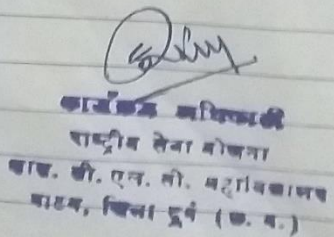 कार्यक्रम अधिकारी
राष्ट्रीय सेवा योजना
शास. वी. एन. सी. महाविद्यालय
पाटन, जिला दुर्ग (छ. ग.)